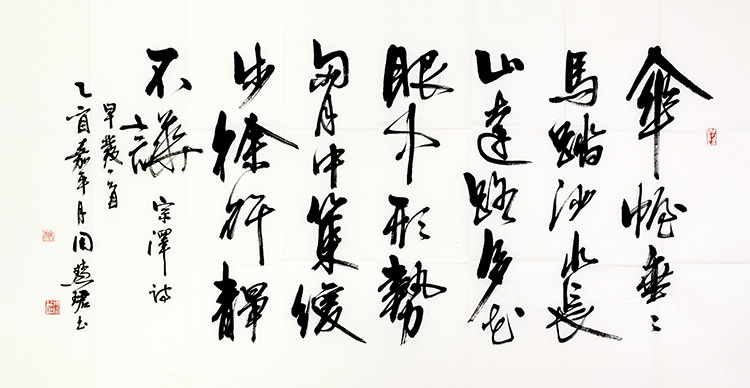 傘幄垂〻
馬踏沙水長
山遠路多花
眼中形勢
胸中策緩
步徐行靜
不譁 宗澤詩
早發一首
乙酉嘉平月周慧珺書